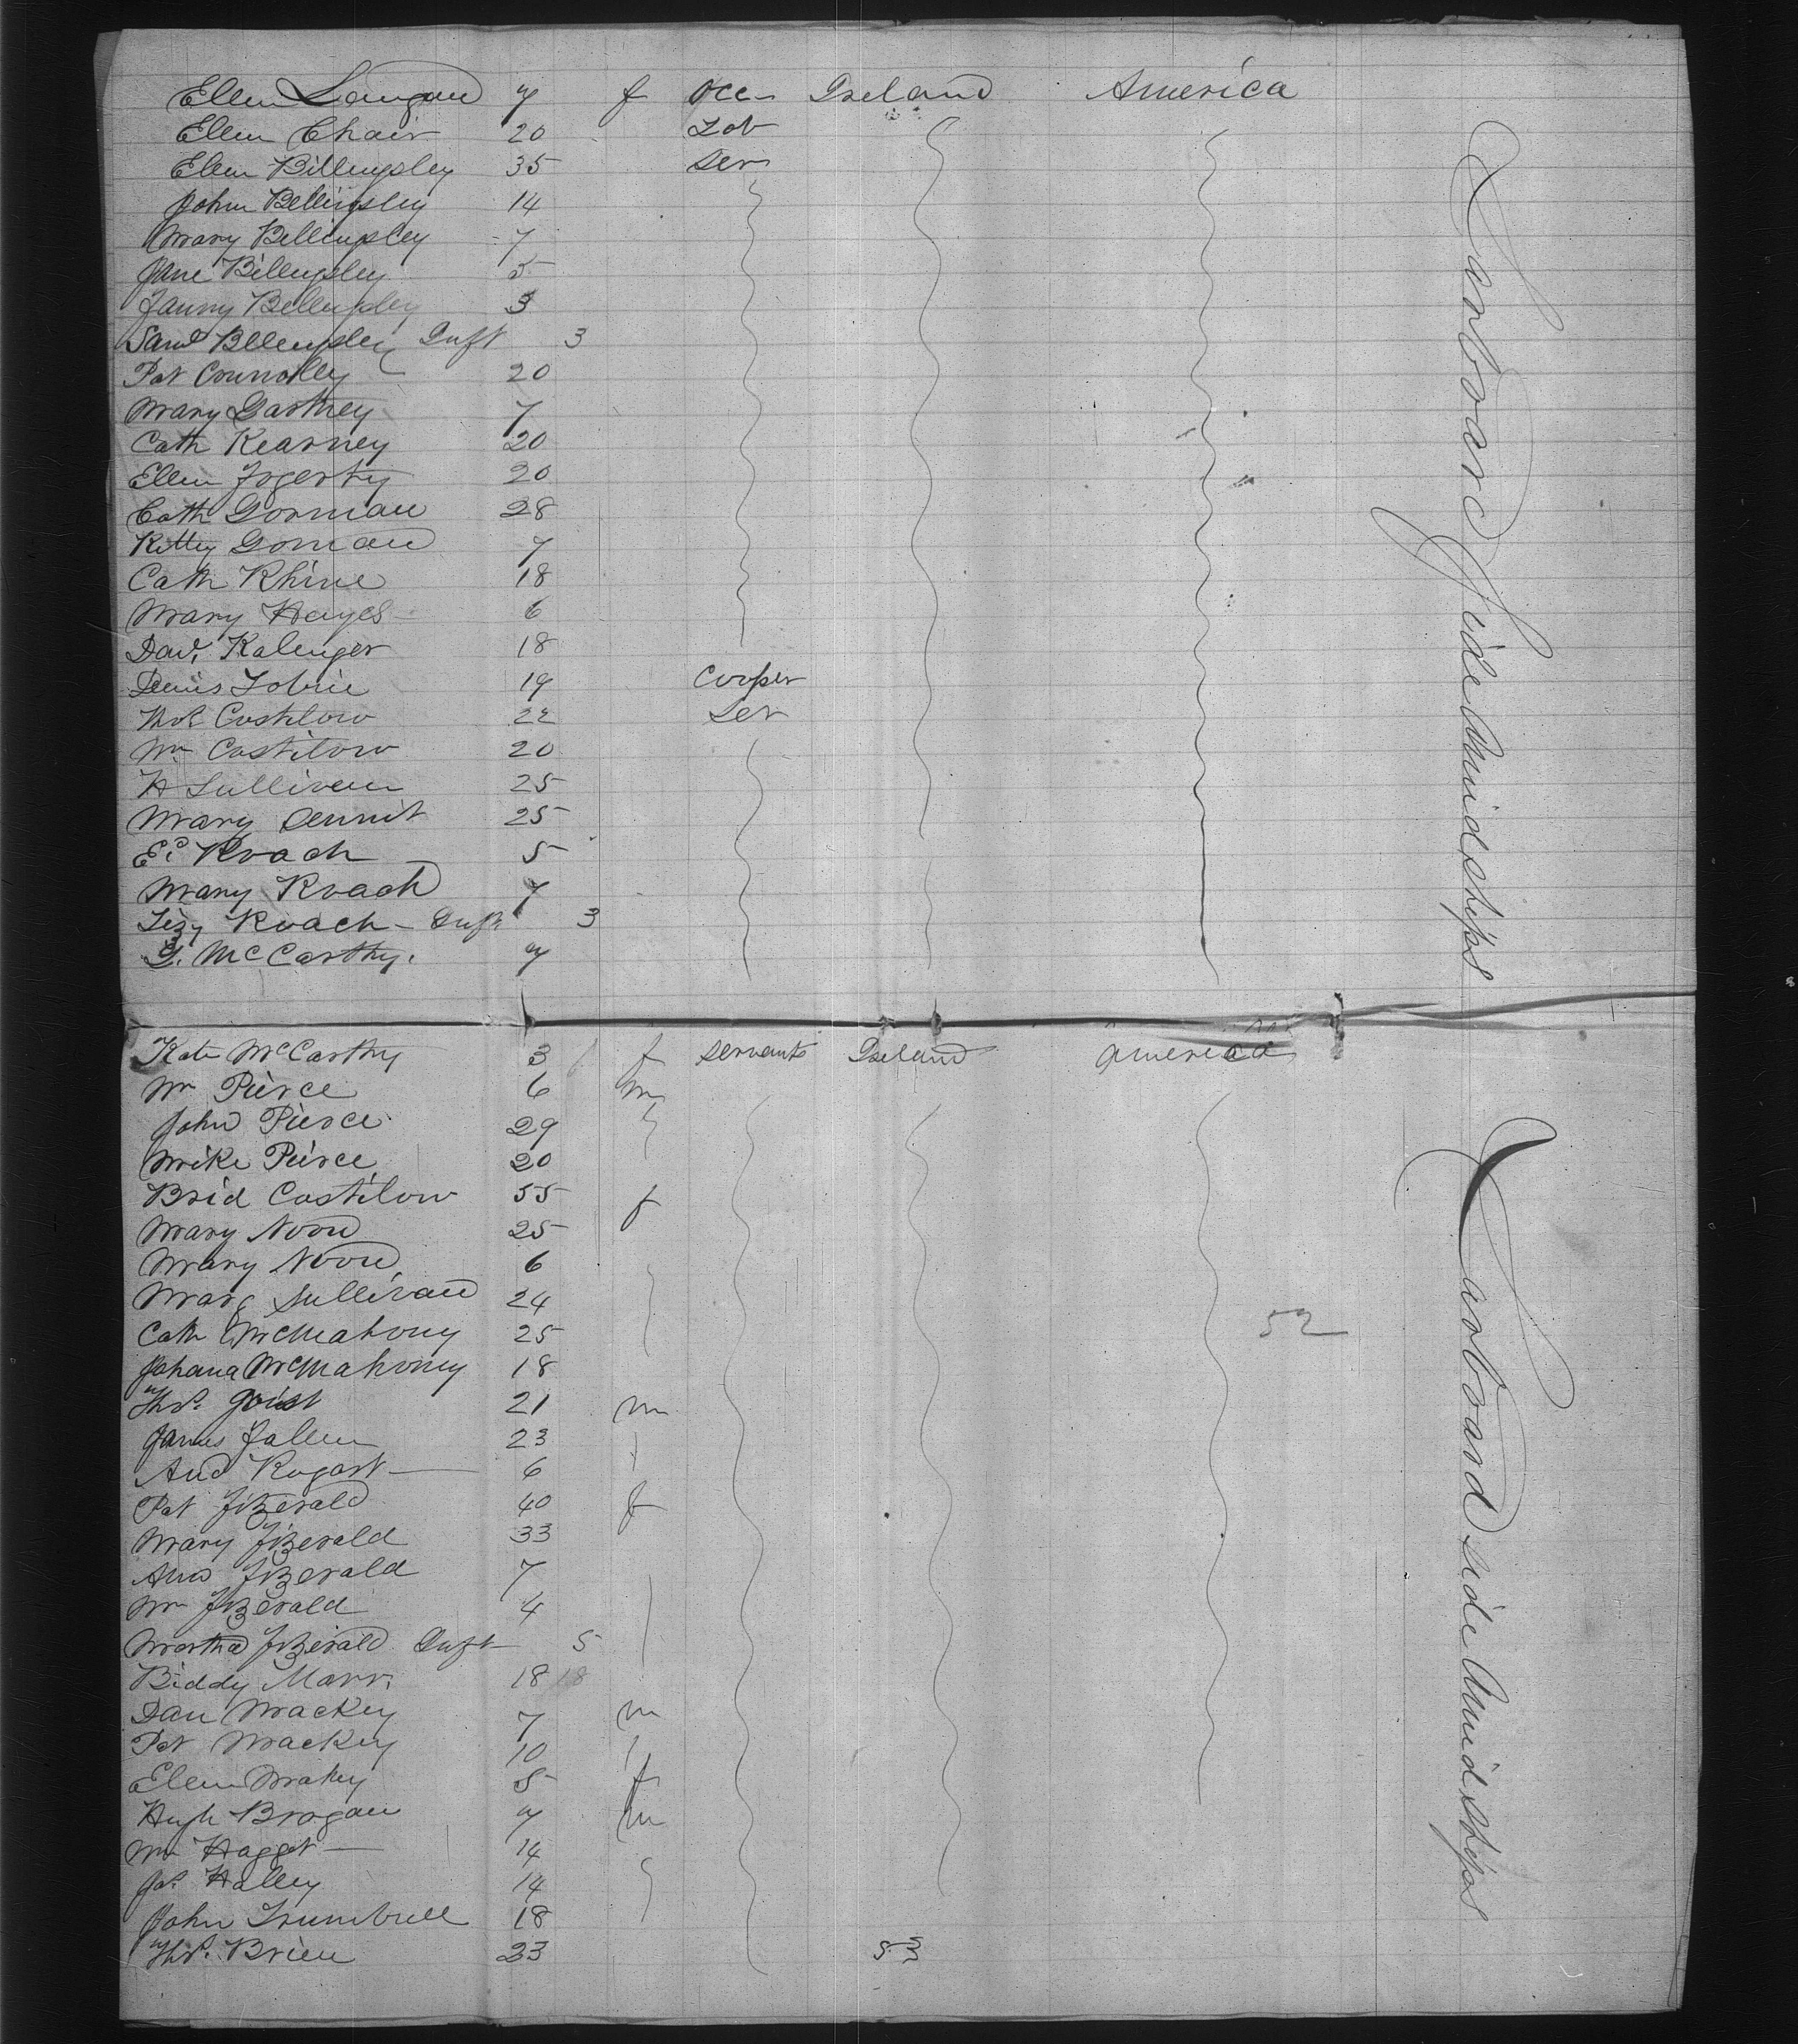 Ellen Langan y f Occ Ireland America
Ellen Chair 20 Lab
Ellen Billingsley 35 Ser
John Billingsley 14
Mary Billingsley 7
Jane Billingsley 5
Fanny Billingsley 3
Saml Billingsley Inft 3
Pat Connolly 20
Mary Gartney 7
Cath Kearney 20
Ellen Fogerty 20
Cath Gorman 28
Kitty Goman 7
Cath Rhine 18
Mary Hayes 6
Davd Kalinger 18
Denis Tobin 19 Cooper
Thos Costilow 22 Ser
Wm Costilow 20
H Sullivan 25
Mary Dennit 25
Ed Roach 5
Mary Roach 7
Lizy Roach - Inft 3
McCarthy. y
Larboard Side Amidships
Kate McCarthy 3 f Servants Ireland America
Wm Pierce 6 m
John Pierce 29
Mike Pierce 20
Brid Costilow 55 f
Mary Noon 25
Mary Noon 6
Marg Sullivan 24
52
Cath McMahony 25
Johana McMahony 18
Thos. 21 m
James 23
And 6
Pat Fitzerald 40 f
Mary Fitzerald 33
Ann Fitzerald 7
Wm Fitzerald 4
Martha Fitzerald Inft 5
Biddy Marr 18 18
Dan Mackey 7 m
Pat Mackey 10
Ellen Makey 5 f
Hugh Brogan y m
Wm Hagget 14
Jas Halley 14
John Trumbull 18
Thos. Brien 23 53
Larboard side Amidships